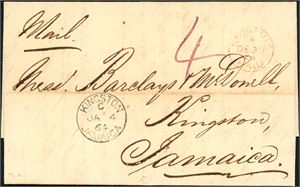 Mail.
4
Messrs. Barclays & McDowell,
Kingston,
Jamaica.
KINGSTON
C
JA 4
64
JAMAICA
DE 30